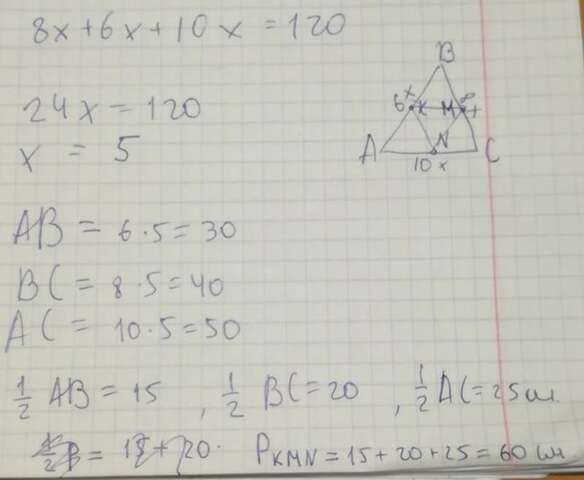 8x + 6x + 10x = 120
B
24x = 120
6x K M 8x
x = 5
A N C
10x
AB = 6·5 = 30
BC = 8·5 = 40
AC = 10·5 = 50
1/2 AB = 15, 1/2 BC = 20, 1/2 AC = 25 см.
P KMN = 15 + 20 + 25 = 60 см